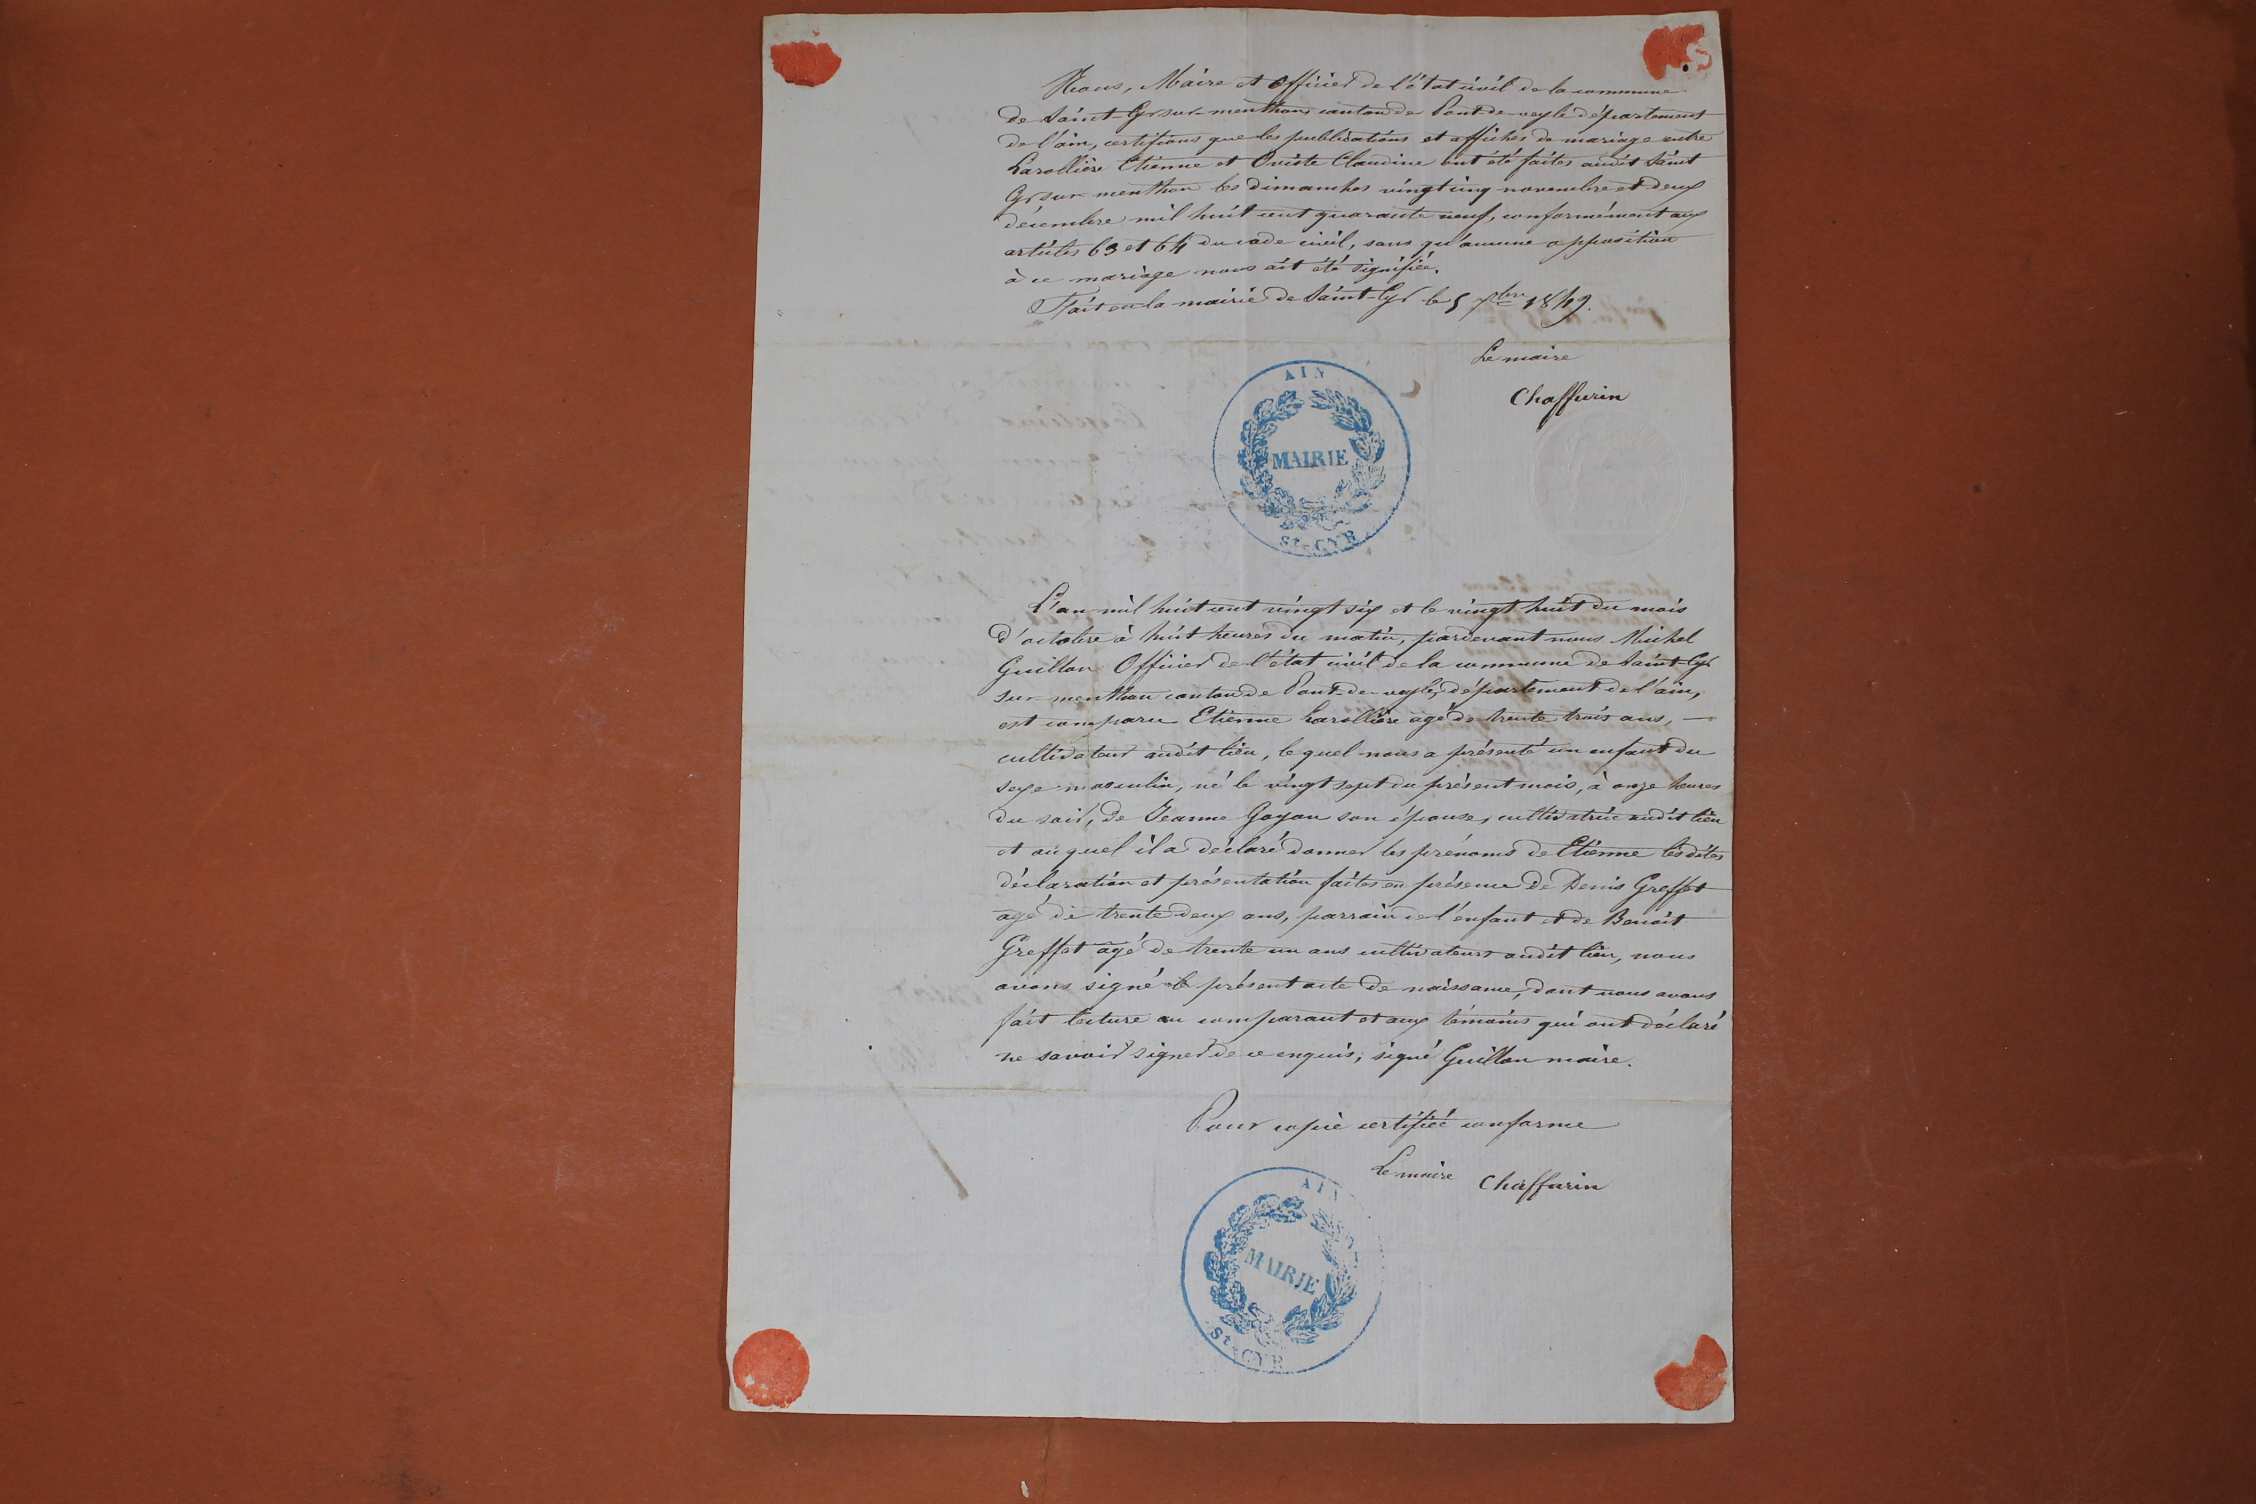 Nous, Maire et Officier de l'état civil de la commune
de Saint-Cyr sur-menthon, canton de Pont-de-veyle département
de l'ain, certifions que les publications et affiches de mariage entre
Larollière Etienne et Oviste Claudine ont été faites audit Saint
Cyr sur menthon les dimanches vingt cinq novembre et deux
décembre mil huit cent quarante neuf, conformément aux
articles 63 et 64 du code civil, sans qu'aucune opposition
à ce mariage nous ait été signifiée.
Fait en la mairie de Saint-Cyr le 5 Xbre 1849.
Le maire
Chaffurin
AIN
MAIRIE
St-CYR
L'an mil huit cent vingt six et le vingt huit du mois
d'octobre à huit heures du matin, pardevant nous Michel
Guillon Officier de l'état civil de la commune de Saint-Cyr
sur-menthon canton de Pont-de-veyle, département de l'ain,
est comparu Etienne Larollière âgé de trente trois ans, —
cultivateur audit lieu, lequel nous a présenté un enfant du
sexe masculin, né le vingt sept du présent mois, à onze heures
du soir, de Jeanne Goyon son épouse, cultivatrice audit lieu
et auquel il a déclaré donner les prénoms de Etienne lesdites
déclaration et présentation faites en présence de Denis Greffet
âgé de trente deux ans, parrain de l'enfant et de Benoit
Greffet âgé de trente un ans cultivateurs audit lieu, nous
avons signé le présent acte de naissance, dont nous avons
fait lecture au comparant et aux témoins qui ont déclaré
ne savoir signer de ce enquis; signé Guillon maire.
Pour copie certifiée conforme
Le maire Chaffurin
AIN
MAIRIE
St-CYR